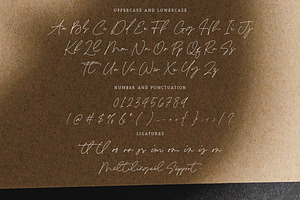 UPPERCASE AND LOWERCASE
Aa Bb Cc Dd Ee Ff Gg Hh Ii Jj
Kk Ll Mm Nn Oo Pp Qq Rr Ss
Tt Uu Vv Ww Xx Yy Zz
NUMBER AND PUNCTUATION
0123456789
LIGATURES
Multilingual Support